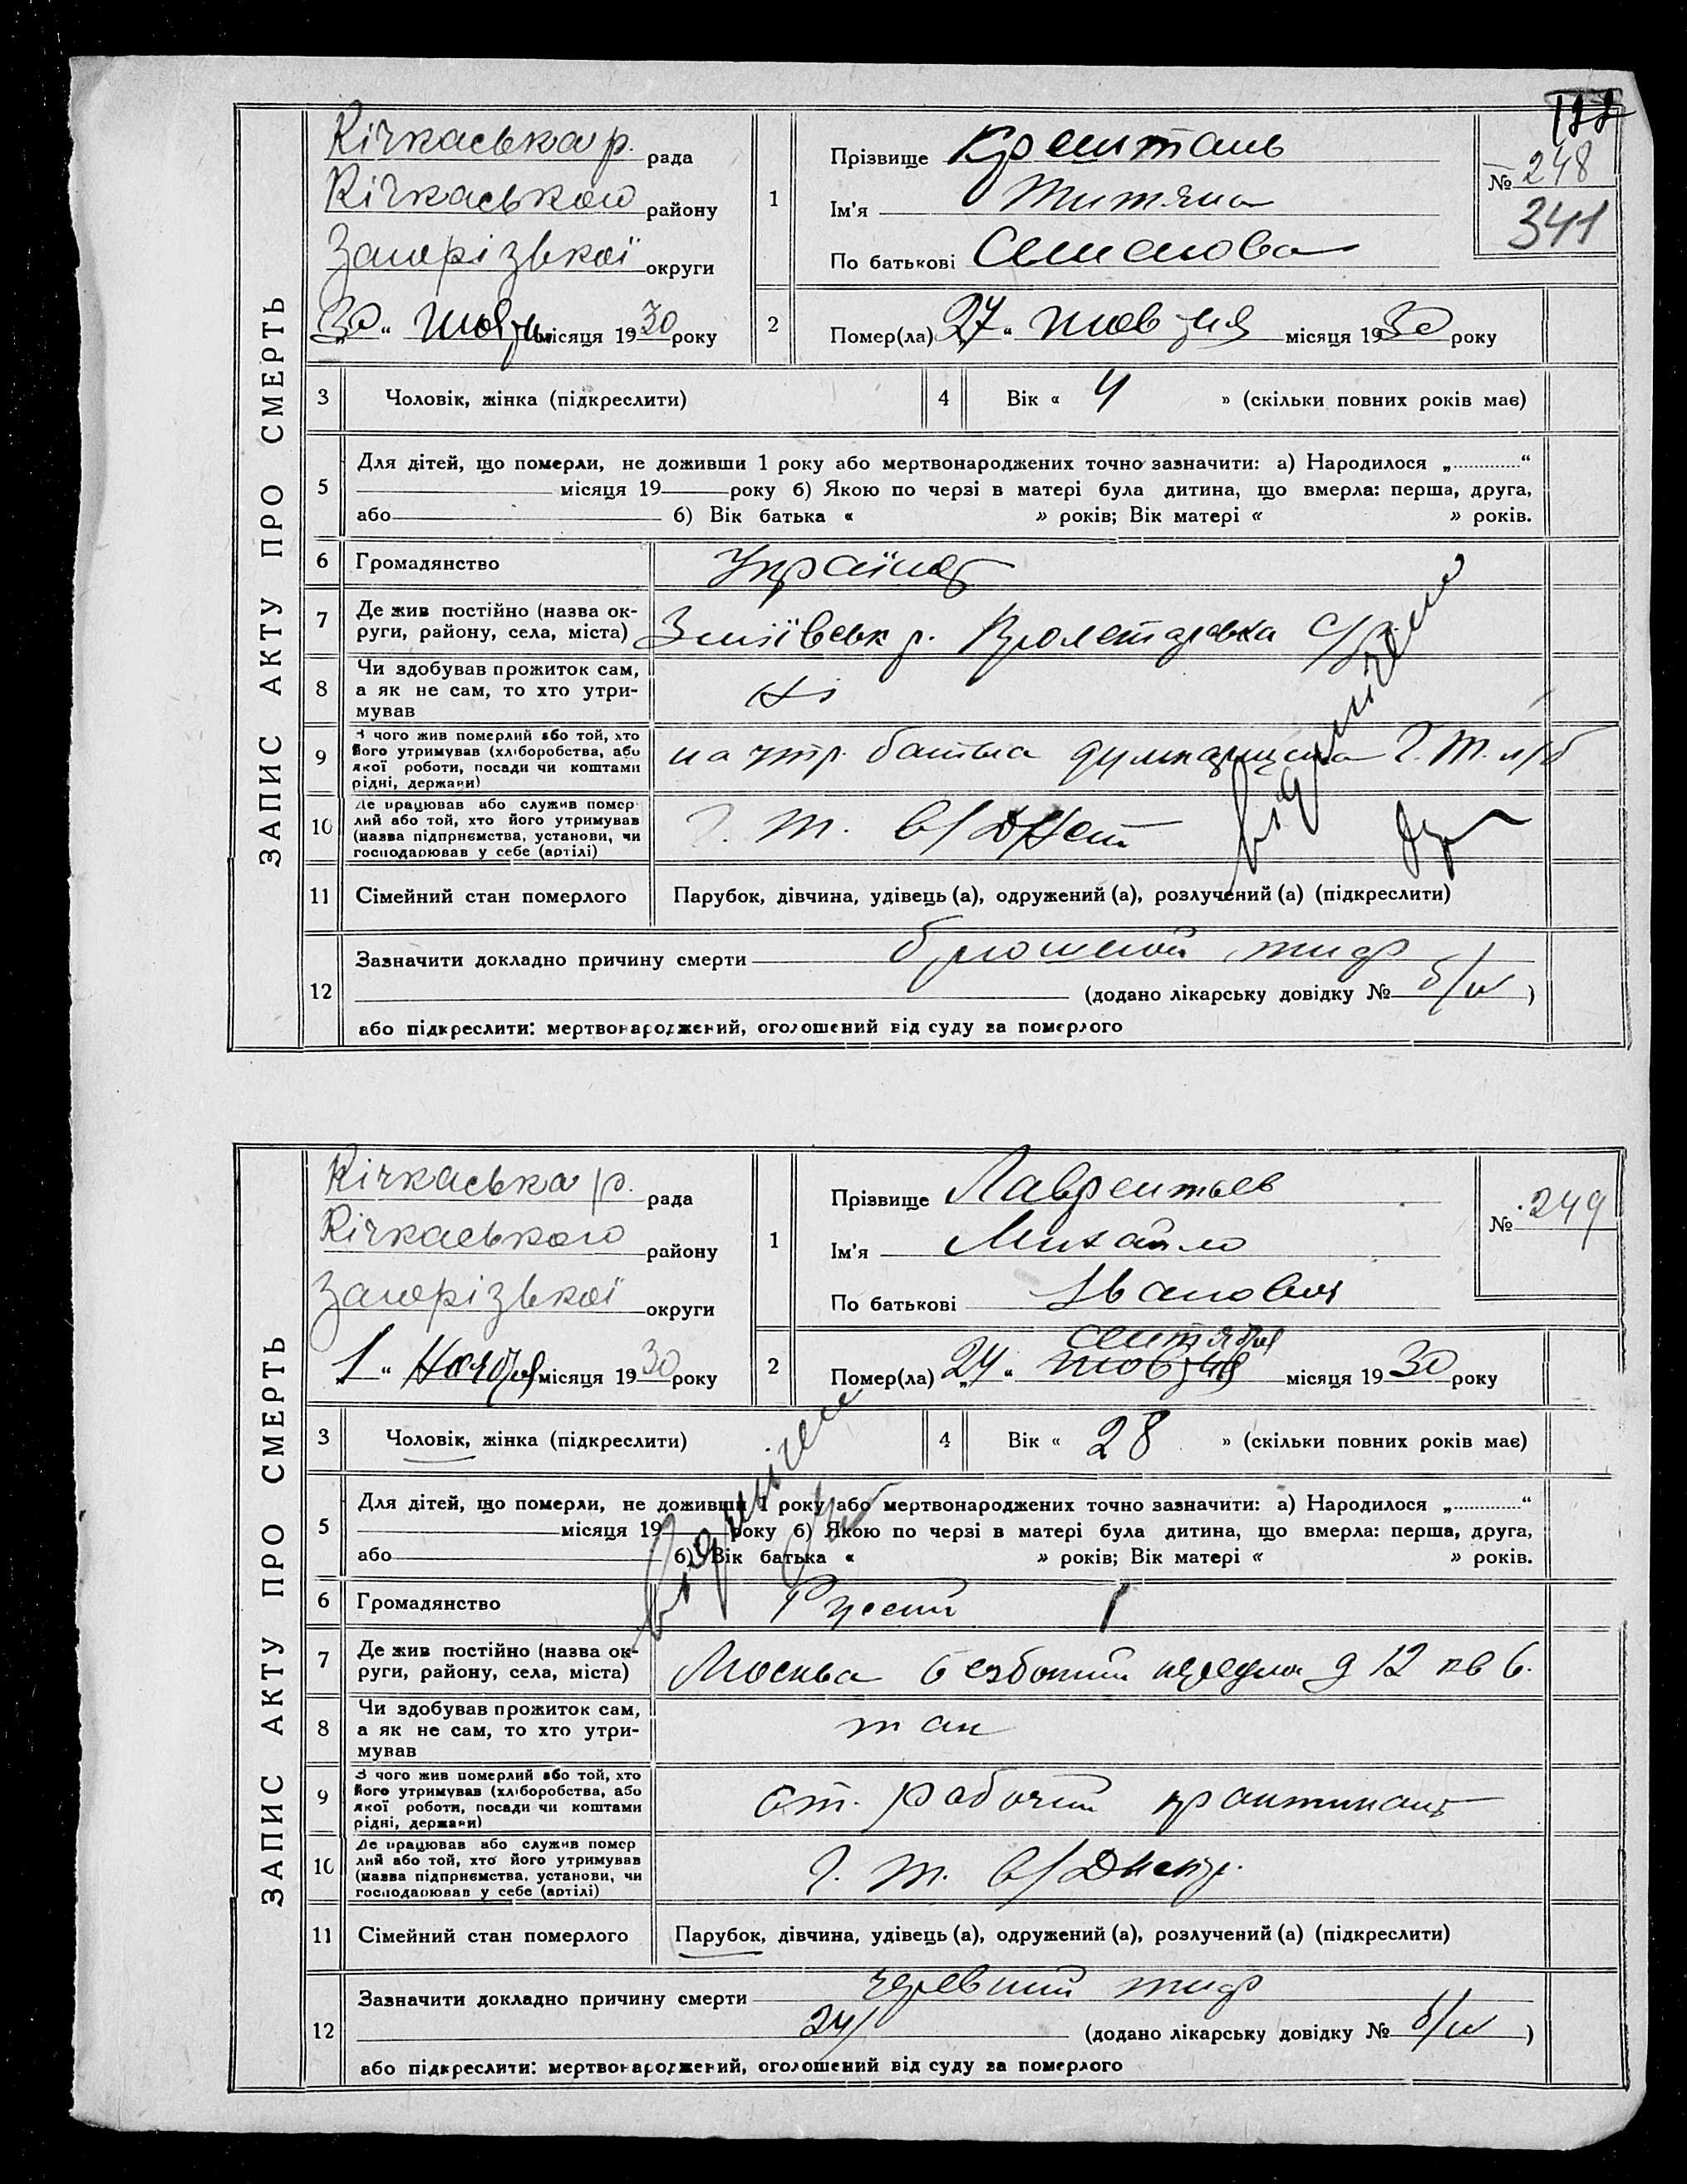 ЗАПИС АКТУ ПРО СМЕРТЬ
Кічкаська р. рада
Кічкаського району
Запорізької округи
30 „ жовтн місяця 1930 року
1
Прізвище
Ім'я
По батькові Семенова
122
№ 248
341
2 Помер(ла) „27“ жовтня місяця 1930 року
3 Чоловік, жінка (підкреслити)
4 Вік « 4 » (скільки повних років має)
5 Для дітей, що померли, не доживши 1 року або мертвонароджених точно зазначити: а) Народилося „ “
місяця 19 року б) Якою по черзі в матері була дитина, що вмерла: перша, друга,
або б) Вік батька « » років; Вік матері « » років.
6 Громадянство Україн
7 Де жив постійно (назва ок-
руги, району, села, міста) р. Пролетарська с/р
8 Чи здобував прожиток сам,
а як не сам, то хто утри-
мував
ні
9 З чого жив померлий або той, хто
його утримував (хліборобства, або
якої роботи, посади чи коштами
рідні, держави)
на утр. батька
10 Де працював або служив помер-
лий або той, хто його утримував
(назва підприємства, установи, чи
господарював у себе (артілі)
Г. Т. в/Днеп
відмічено
11 Сімейний стан померлого Парубок, дівчина, удівець (а), одружений (а), розлучений (а) (підкреслити)
12 Зазначити докладно причину смерти брюшной тиф
(додано лікарську довідку № б/н )
або підкреслити: мертвонароджений, оголошений від суду за померлого
ЗАПИС АКТУ ПРО СМЕРТЬ
Кічкаська р. рада
Кічкаського району
Запорізької округи
1 „ Ноября місяця 1930 року
1
Прізвище Лаврентьев
Ім'я Михайло
По батькові Іванович
№ 249
сентября
2 Помер(ла) „24“ жовтня місяця 1930 року
3 Чоловік, жінка (підкреслити)
4 Вік « 28 » (скільки повних років має)
5 Для дітей, що померли, не доживши 1 року або мертвонароджених точно зазначити: а) Народилося „ “
місяця 19 року б) Якою по черзі в матері була дитина, що вмерла: перша, друга,
або б) Вік батька « » років; Вік матері « » років.
відмічено
6 Громадянство Руский
7 Де жив постійно (назва ок-
руги, району, села, міста) Москва д 12 кв 6.
8 Чи здобував прожиток сам,
а як не сам, то хто утри-
мував
так
9 З чого жив померлий або той, хто
його утримував (хліборобства, або
якої роботи, посади чи коштами
рідні, держави)
ст. рабочий практикант
10 Де працював або служив помер
лий або той, хто його утримував
(назва підприємства, установи, чи
господарював у себе (артілі)
Г. Т. в/Днепр.
11 Сімейний стан померлого Парубок, дівчина, удівець (а), одружений (а), розлучений (а) (підкреслити)
12 Зазначити докладно причину смерти черевний тиф
24/ (додано лікарську довідку № б/н )
або підкреслити: мертвонароджений, оголошений від суду за померлого